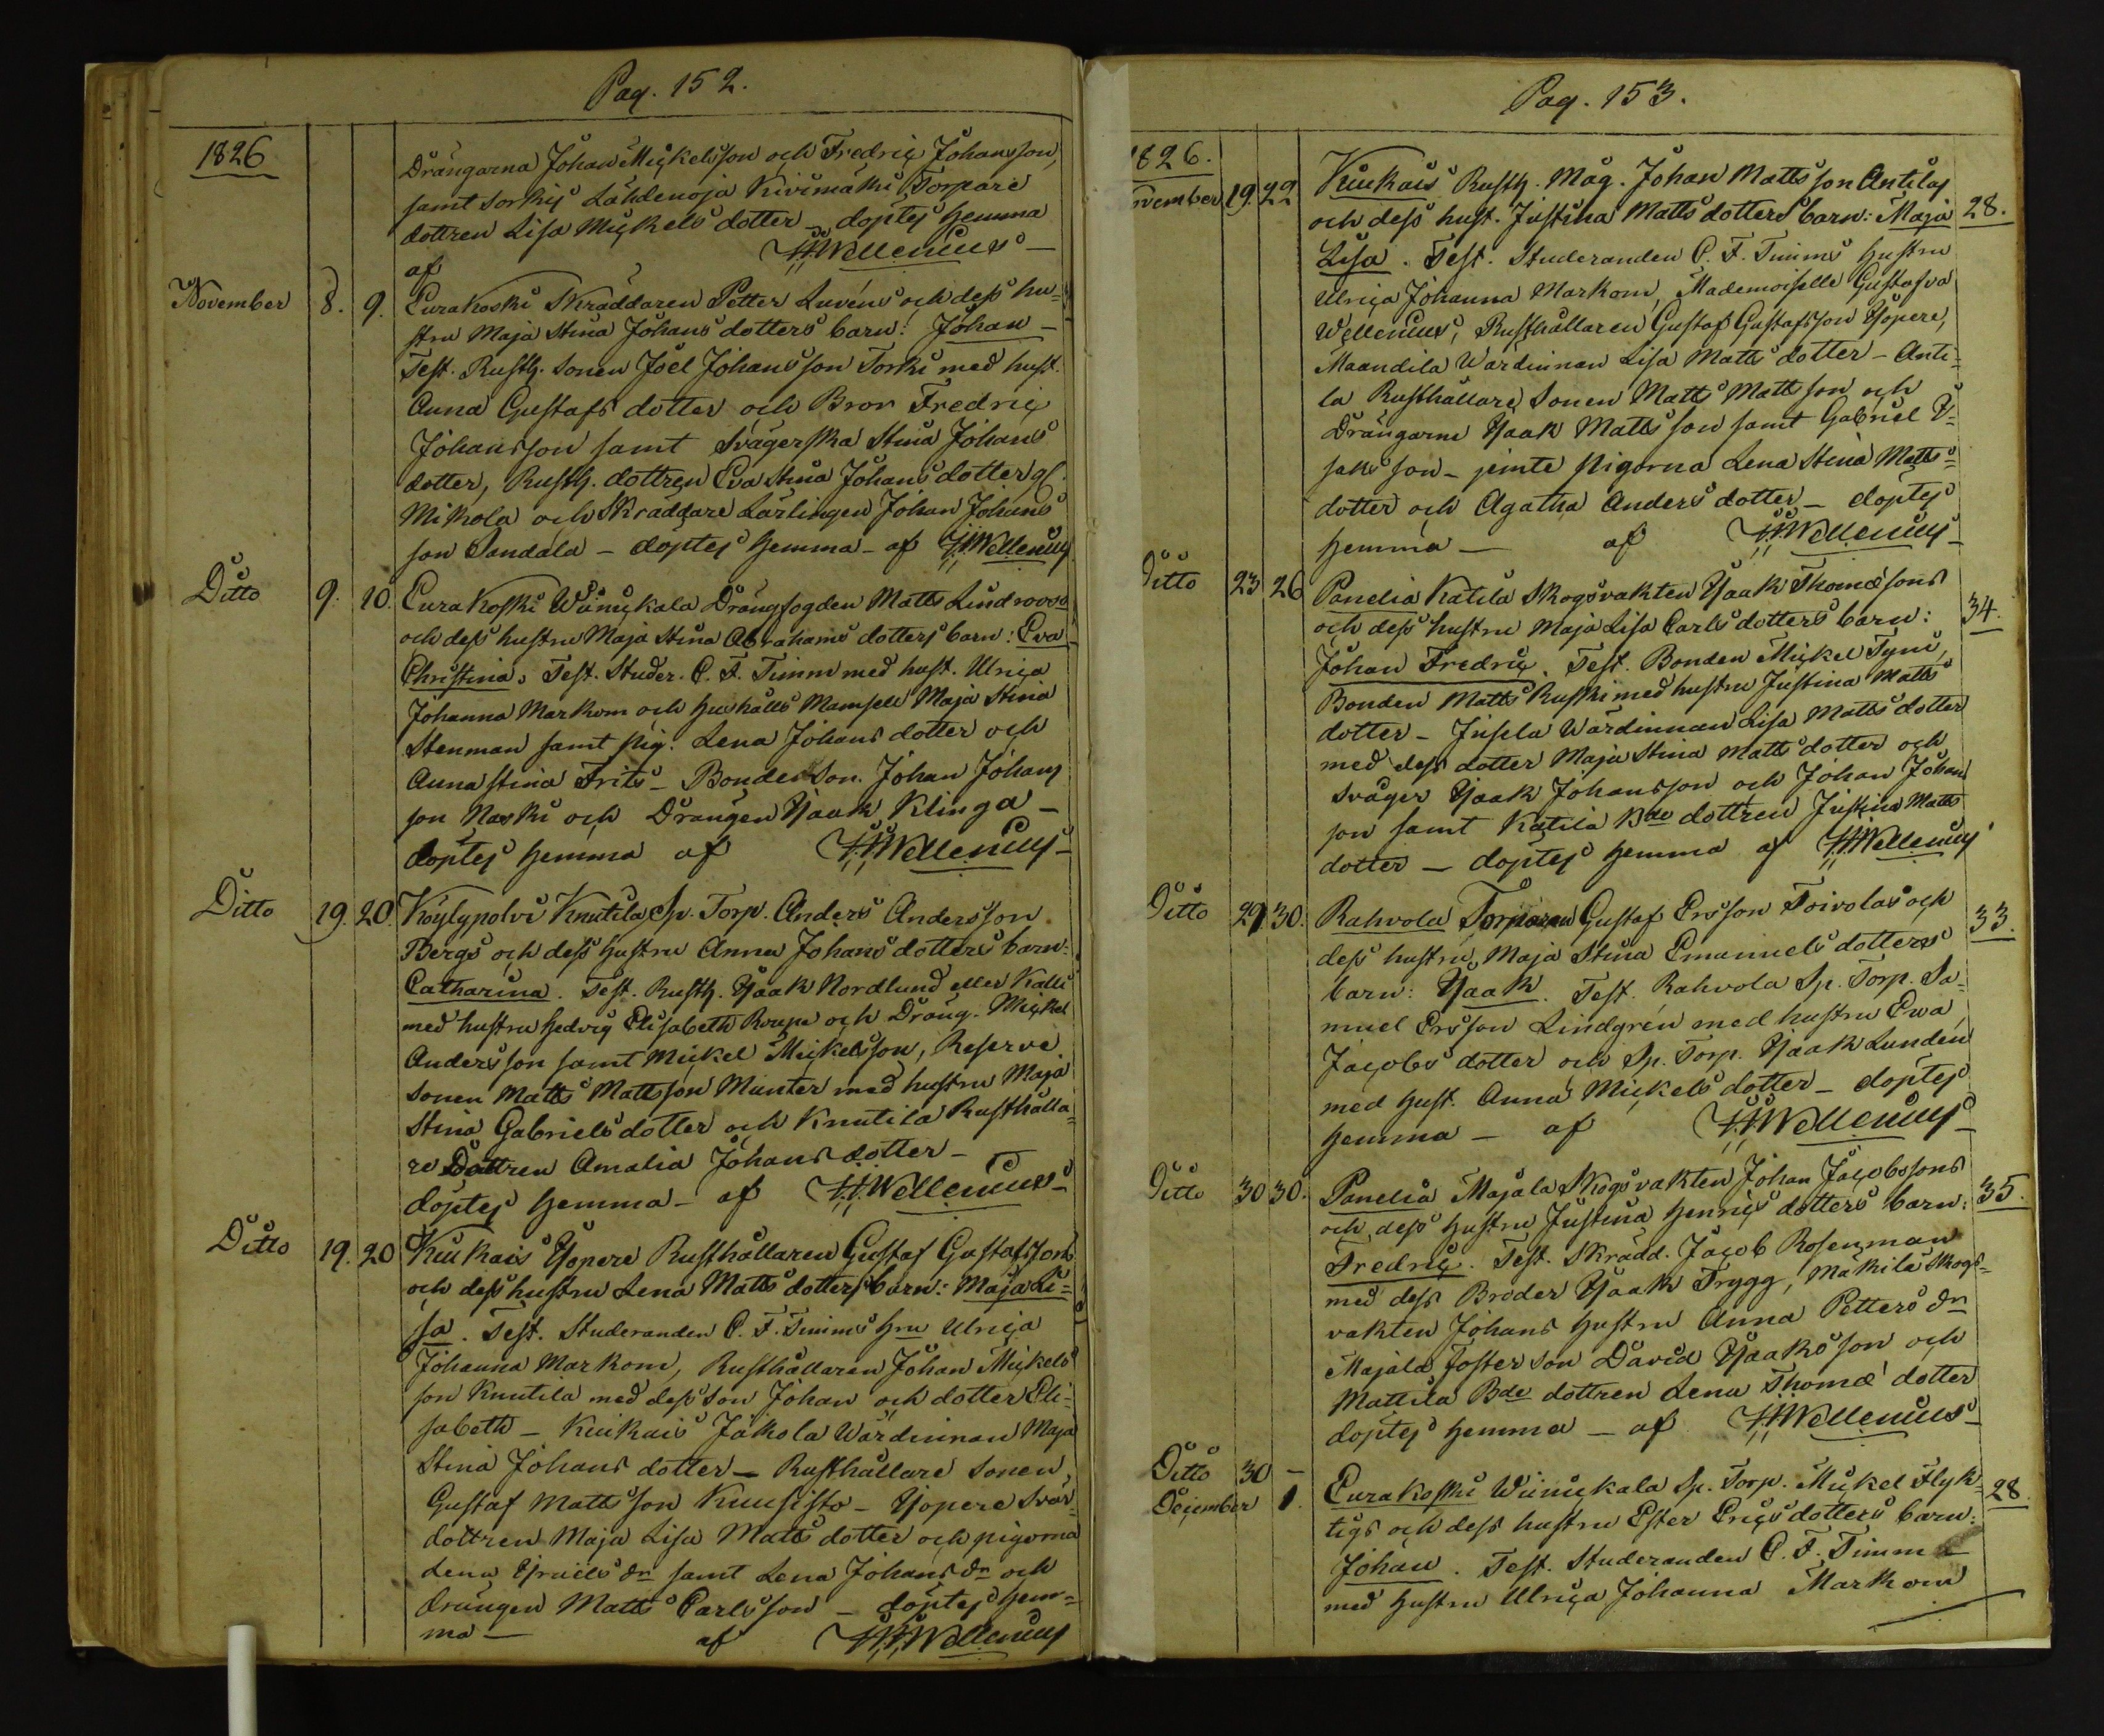 Pag. 152.
1826
Drängarna Johan Mickelsson och Fredric Johansson,
samt Sorkis Lähdenoja Kivimäki Torpare
dottren Lisa Mickels dotter – döptes hemma
af Wellenius –
November 8. 9. Eurakoski Skräddaren Petter Luréns och dess hu-
stru Maja Stina Johans dotters barn: Johan –
Test. Rusth. Sonen Joël Johansson Torki med hust.
Anna Gustafs dotter och Bror Fredric
Johansson samt Svägerska Stina Johans
dotter, Rusth. dottren Eva Stina Johans dotter
Mikola och Skräddare Lärlingen Johan Johans
son Sandala – döptes hemma – af Wellenius
Ditto 9. 10. Eurakoski Winickala Drängfogden Matts Lindroos
och dess hustru Maja Stina Abrahams dotters barn: Eva
Christina. Test. Studer. C. F. Timm med hust. Ulrica
Johanna Markom och Hushålls Mamsell Maja Stina
Stenman samt pig. Lena Johans dotter och
Anna Stina Frits – Bonde Son. Johan Johans
son Naski och Drängen Isaak Klinga –
döptes hemma af Wellenius –
Ditto 19. 20. Köylypolvi Knutila Sp. Torp. Anders Andersson
Bergs och dess hustru Anna Johans dotters barn:
Catharina. Test. Rusth. Isaak Nordlund eller Kalli
med hustru Hedvig Elisabeth Roupe och Dräng. Mickel
Andersson samt Mickel Mickelsson, Reserve
Sonen Matts Mattsson Munter med hustru Maja
Stina Gabriels dotter och Knutila Rusthålla-
re Dottren Amalia Johans dotter –
döptes hemma – af Wellenius –
Ditto 19. 20 Kiukais Yopere Rusthållaren Gustaf Gustafssons
och dess hustru Lena Matts dotters barn: Maja Li-
sa. Test. Studeranden C. F. Timms Hru Ulrica
Johanna Markom, Rusthållaren Johan Mickels
son Knutila med dess Son Johan och dotter Eli-
sabeth – Kiukais Jäkola Wärdinnan Maja
Stina Johans dotter – Rusthållare Sonen,
Gustaf Mattsson Kuusisto – Yopere Svär-
dottren Maja Lisa Matts dotter och pigorna
Lena Israels dr samt Lena Johans dr och
drängen Matts Carlsson – döptes hem-
ma – af Wellenius
Pag. 153.
1826.
November 19. 22 Kiukais Rusth. Måg. Johan Mattsson Antilas
och dess hust. Justina Matts dotters barn: Maja 28.
Lisa. Test. Studeranden C. F. Timms Hustru
Ulrica Johanna Markom, Mademoiselle Gustafva
Wellenius, Rusthållaren Gustaf Gustafsson Yopere,
Maandila Wärdinnan Lisa Matts dotter – Anti-
la Rusthållare Sonen Matts Mattsson och
Drängarne Isaak Mattsson samt Gabriel I-
saksson – jemte pigorna Lena Stina Matts-
dotter och Agatha Anders dotter – döptes
hemma – af Wellenius –
Ditto 23 26 Panelia Katila Skogsvakten Isaak Thomæsons
och dess hustru Maja Lisa Carls dotters barn: 34.
Johan Fredric. Test. Bonden Mickel Tyni,
Bonden Matts Ruski med hustru Justina Matts
dotter – Jusela Wärdinnan Lisa Matts dotter
med dess dotter Maja Stina Matts dotter och
Svåger Isaak Johansson och Johan Johans
son samt Katila Bde dottren Justina Matts
dotter – döptes hemma af Wellenius
Ditto 29 30. Rahvola Torparen Gustaf Ersson Toivolas och
dess hustru Maja Stina Emanuels dotters 33.
barn: Isaak. Test. Rahvola Sp. Torp. Sa-
muel Ersson Lindgrén med hustru Ewa
Jacobs dotter och Sp. Torp. Isaak Lundén
med Hust. Anna Mickels dotter – döptes
hemma – af Wellenius –
Ditto 30 30. Panelia Majala Skogsvakten Johan Jacobssons
och dess hustru Justina Henrics dotters barn: 35.
Fredric. Test. Skrädd. Jacob Rosenman
med dess Broder Isaak Trygg, Mäkilä Skogs-
vakten Johans hustru Anna Petters dr
Majala foster son David Isaaksson och
Mattila Bde dottren Lena Thomæ dotter
döptes hemma – af Wellenius –
Ditto 30 –
December 1. Eurakoski Winickala Sp. Torp. Mickel Flyk-
tigs och dess hustru Ester Erics dotters barn: 28.
Johan. Test. Studeranden C. F. Timm
med hustru Ulrica Johanna Markom